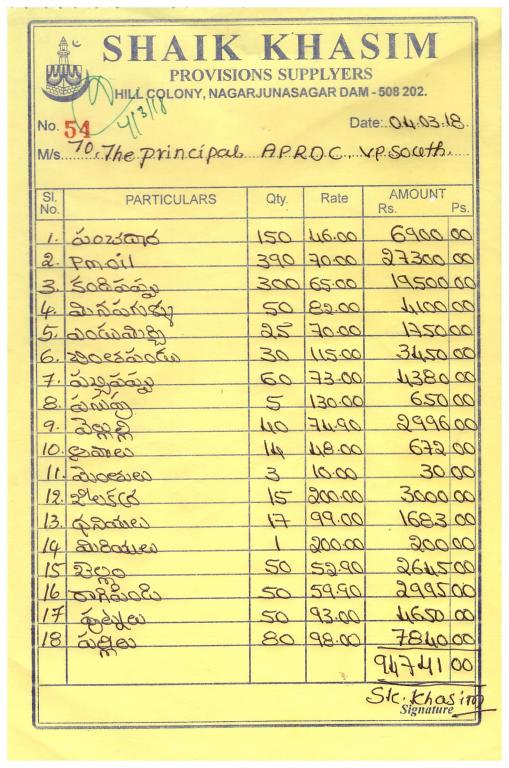 SHAIK KHASIM
PROVISIONS SUPPLYERS
HILL COLONY, NAGARJUNASAGAR DAM - 508 202.
4/3/18
No. 54 Date: 04.03.18
M/s. To, The principal APRDC, VP South.
Sl. No. PARTICULARS Qty. Rate AMOUNT Rs. Ps.
1. పంచదార 150 46.00 6900 00
2. Pmoil 390 70.00 27300 00
3. కందిపప్పు 300 65.00 19500 00
4. మినపగుళ్ళు 50 82.00 4100 00
5. ఎండుమిర్చి 25 70.00 1750 00
6. చింతపండు 30 115.00 3450 00
7. పచ్చిపప్పు 60 73.00 4380 00
8. పసుపు 5 130.00 650 00
9. వెల్లుల్లి 40 74.90 2996 00
10. ఆవాలు 14 48.00 672 00
11. మెంతులు 3 10.00 30 00
12. జీలకర్ర 15 200.00 3000 00
13. ధనియాలు 17 99.00 1683 00
14 మిరియాలు 1 200.00 200 00
15 బెల్లం 50 52.90 2645 00
16 రాగిపిండి 50 59.90 2995 00
17 పుట్నాలు 50 93.00 4650 00
18 పల్లీలు 80 98.00 7840 00
94741 00
Sk. Khasim
Signature